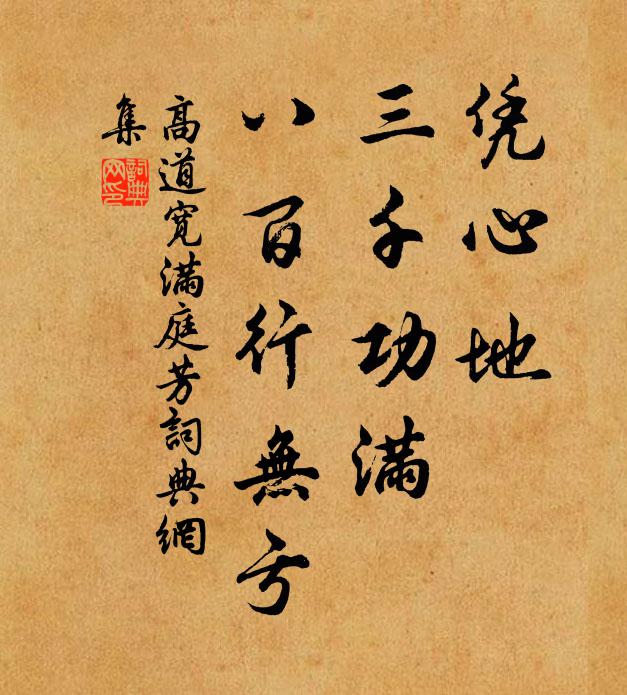 凭心地
三千功满
八百行無亏
高道宽满庭芳詞典網
集
詞典
网印